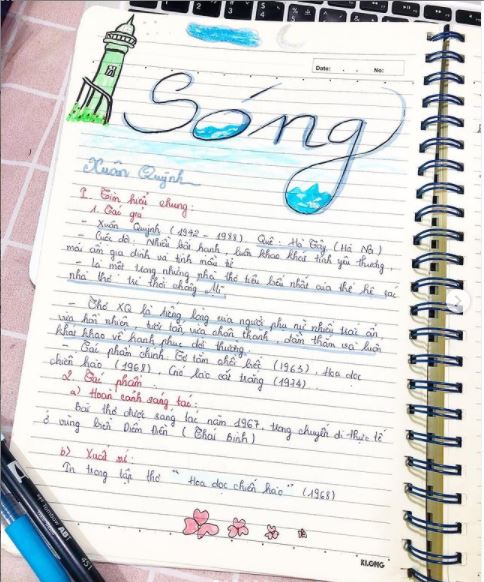 Date: . . No:
Sóng
Xuân Quỳnh
I. Tìm hiểu chung:
1. Tác giả
- Xuân Quỳnh (1942 - 1988) Quê: Hà Tây (Hà Nội)
- Cuộc đời: Nhiều bất hạnh, luôn khao khát tình yêu thương,
mái ấm gia đình và tình mẫu tử
- Là một trong những nhà thơ tiêu biểu nhất của thế hệ các
nhà thơ trẻ thời chống Mĩ
- Thơ XQ là tiếng lòng của người phụ nữ nhiều trắc ẩn,
vừa hồn nhiên, tươi tắn vừa chân thành, đằm thắm và luôn
khát khao về hạnh phúc đời thường.
- Tác phẩm chính: Tơ tằm chồi biếc (1963), Hoa dọc
chiến hào (1968), Gió lào cát trắng (1974)
2. Tác phẩm
a) Hoàn cảnh sáng tác:
Bài thơ được sáng tác năm 1967, trong chuyến đi thực tế
ở vùng biển Diêm Điền (Thái Bình)
b) Xuất xứ:
In trong tập thơ "Hoa dọc chiến hào" (1968)
KLONG
ABT
451